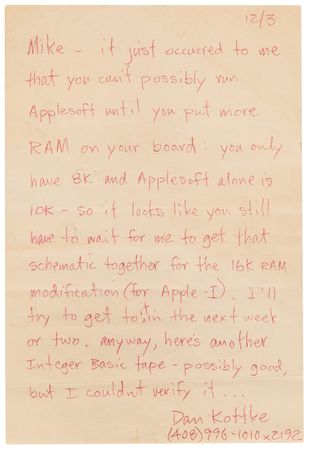 12/3
Mike - it just occurred to me
that you can't possibly run
Applesoft until you put more
RAM on your board: you only
have 8K and Applesoft alone is
10K - so it looks like you still
have to wait for me to get that
schematic together for the 16K RAM
modification (for Apple-I). I'll
try to get to it in the next week
or two. anyway, here's another
Integer Basic tape - possibly good,
but I couldn't verify it...
Dan Kottke
(408) 996-1010 x2192